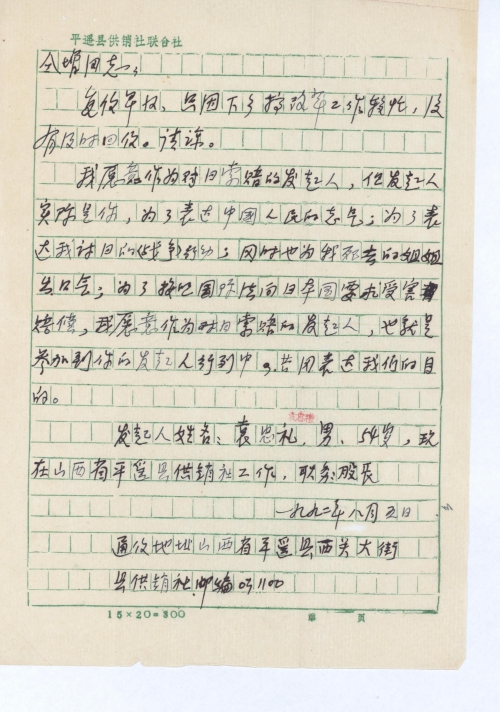 平遥县供销社联合社
同志：
复信早收，只因下乡搞改革工作较忙，没
有及时回信。请谅。
我愿意作为对日索赔的发起人，但发起人
实际是你，为了表达中国人民的志气；为了表
达我讨日的战争行动；同时也为我死去的姐姐
出口气；为了按照国际法向日本国要求受害
赔偿，我愿意作为对日索赔的发起人，也就是
参加到你的发起人行列中，共同表达我们的目
的。
发起人姓名：袁忠礼，男，54岁，现
在山西省平遥县供销社工作，职务：股长
一九九二年八月五日
通信地址山西省平遥县西关大街
县供销社 邮编031100
15×20=300 第 页